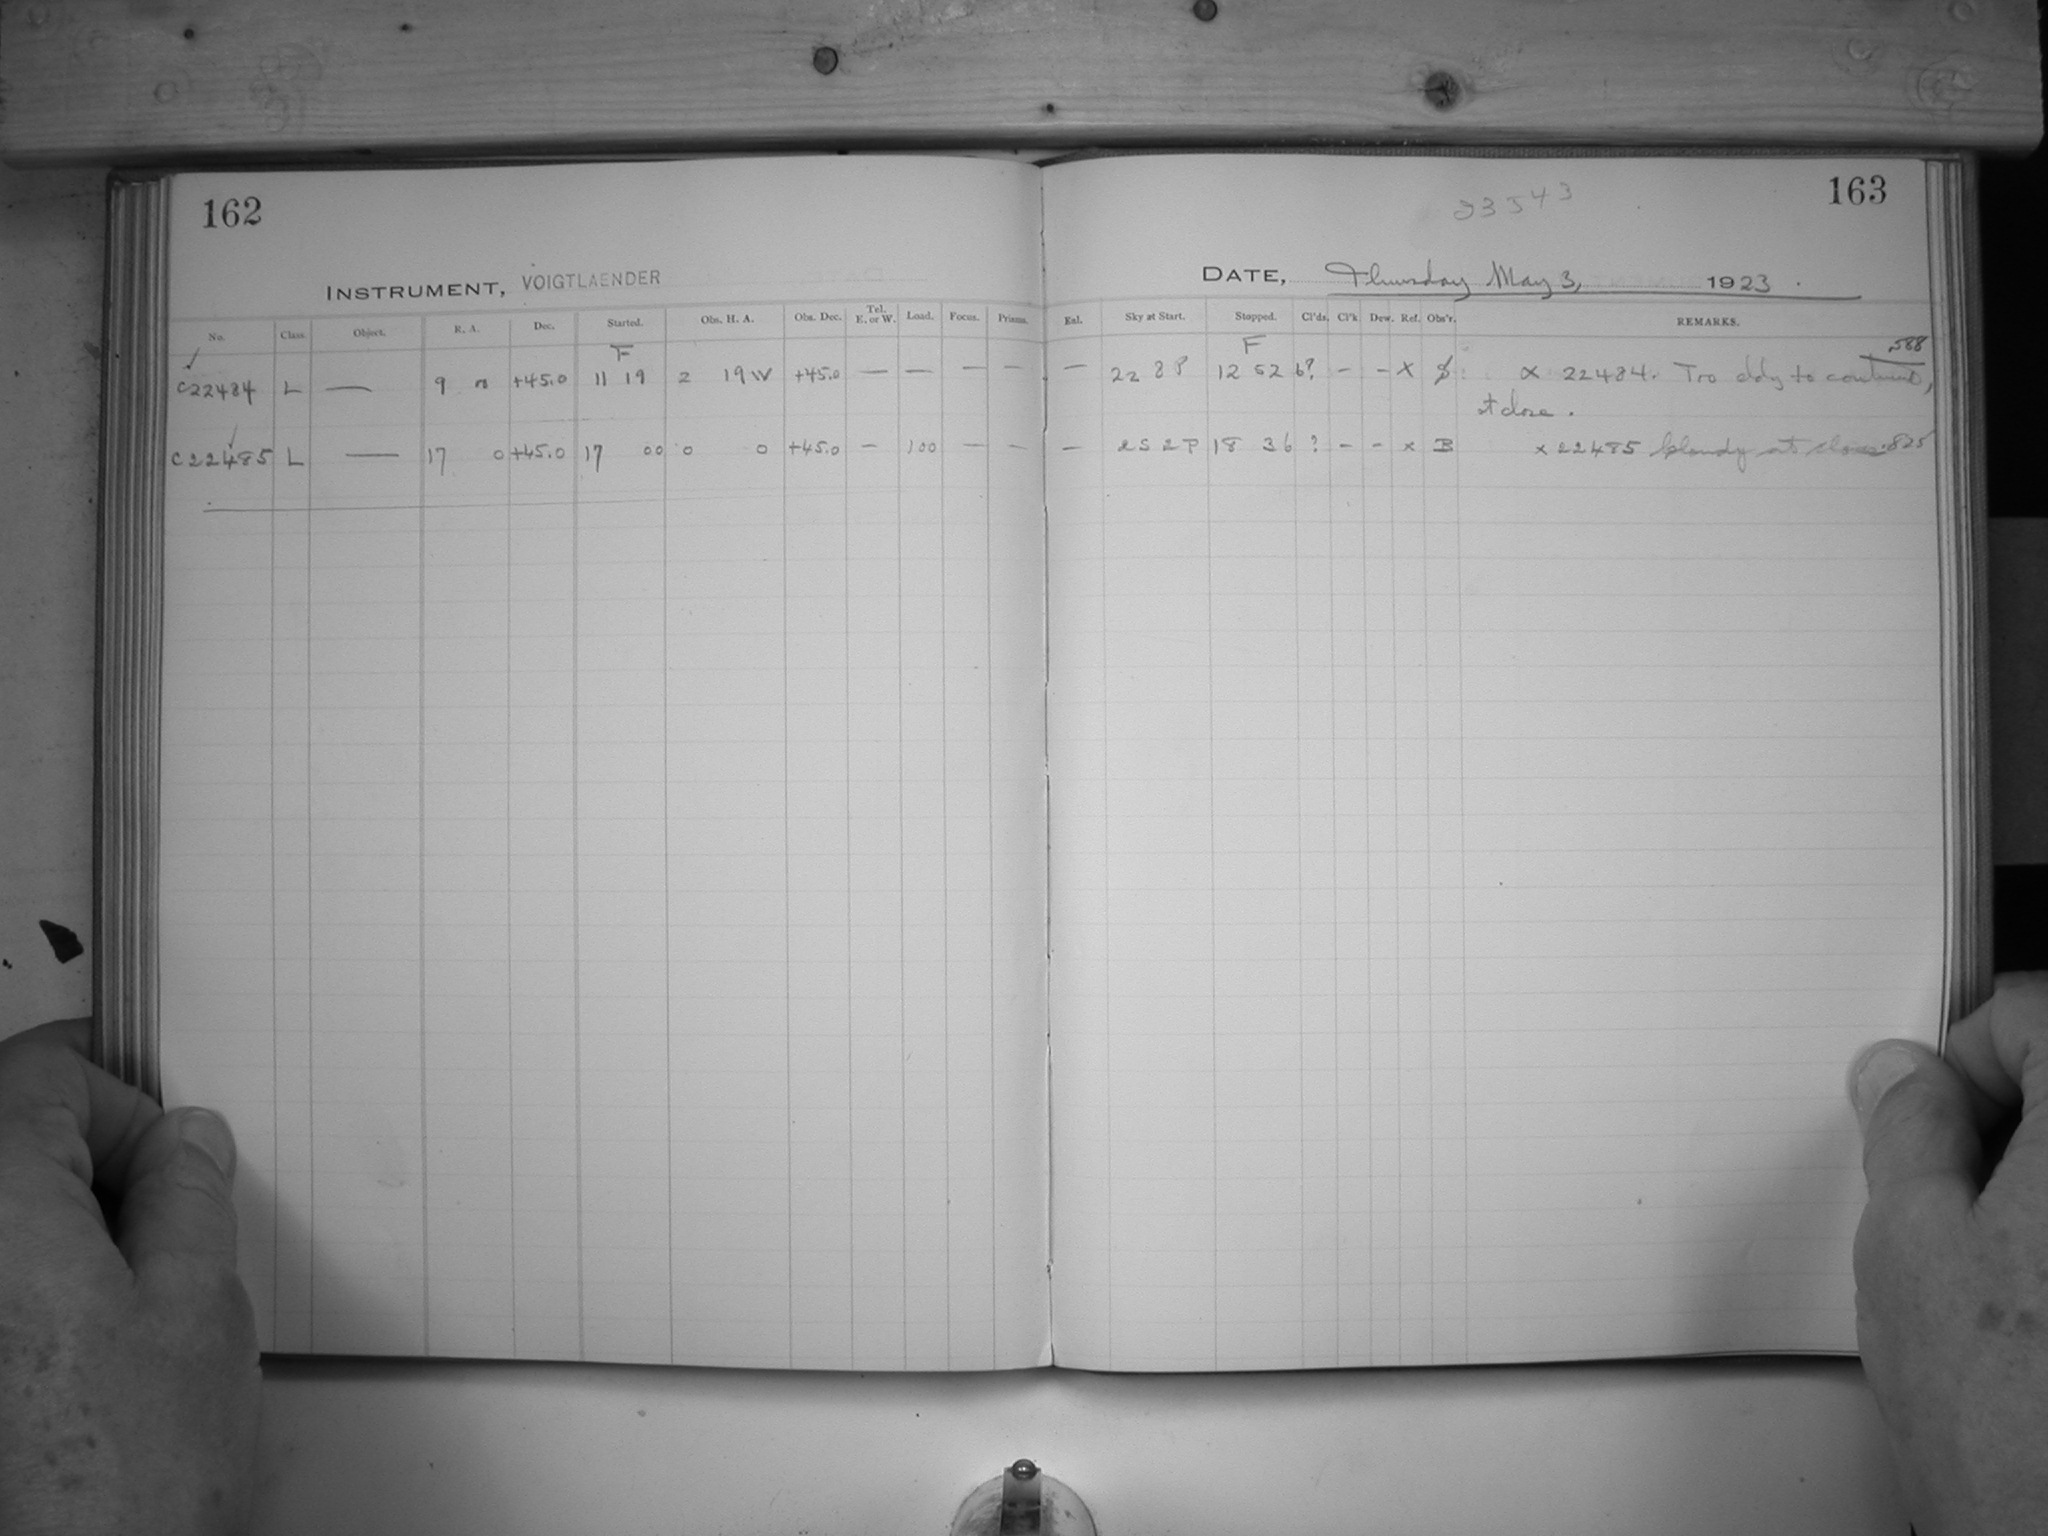 162
INSTRUMENT, VOIGTLAENDER
No. Class. Object. R. A. Dec. Started. Obs. H. A. Obs. Dec. Tel. E. or W. Load. Focus. Prisms.
F
C22484 L — 9 0 +45.0 11 19 2 19 W +45.0 — — — —
C22485 L — 17 0 +45.0 17 00 0 0 +45.0 — 100 — —
163
23543
DATE, Thursday May 3, 1923.
Enl. Sky at Start. Stopped. Cl'ds. Cl'k Dew. Ref. Obs'r. REMARKS.
F .588
— 22 8 P 12 52 6? – – X 22484. Too to continue,
at close.
— 2S 2 P 18 36 ? – – x B x 22485 Cloudy at close .825